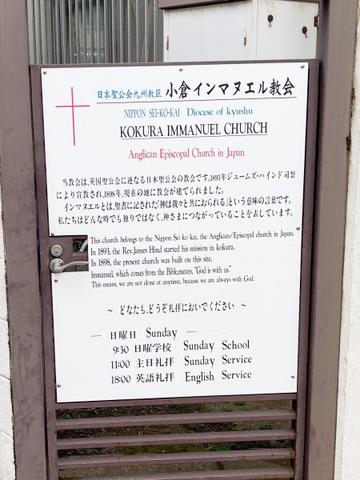 日本聖公会九州教区 小倉インマヌエル教会
NIPPON SEI-KO-KAI Diocese of kyushu
KOKURA IMMANUEL CHURCH
Anglican Episcopal Church in Japan
当教会は、英国聖公会に連なる日本聖公会の教会です。1893年ジェームズ・ハインド司祭
により宣教され、1898年、現在の地に教会が建てられました。
インマヌエルとは、聖書に記された「神は我々と共におられる」という意味の言葉です。
私たちはどんな時でも独りではなく、神さまにつながっていることを表しています。
This church belongs to the Nippon Sei ko kai, the Anglican/Episcopal church in Japan.
In 1893, the Rev.James Hind started his mission in kokura.
In 1898, the present church was built on this site.
Immanuel, which comes from the Bible,means, "God is with us."
This means, we are not alone at anytime, because we are always with God.
〜 どなたも、どうぞ礼拝においでください 〜
— 日曜日 Sunday —
9:30 日曜学校 Sunday School
11:00 主日礼拝 Sunday Service
18:00 英語礼拝 English Service